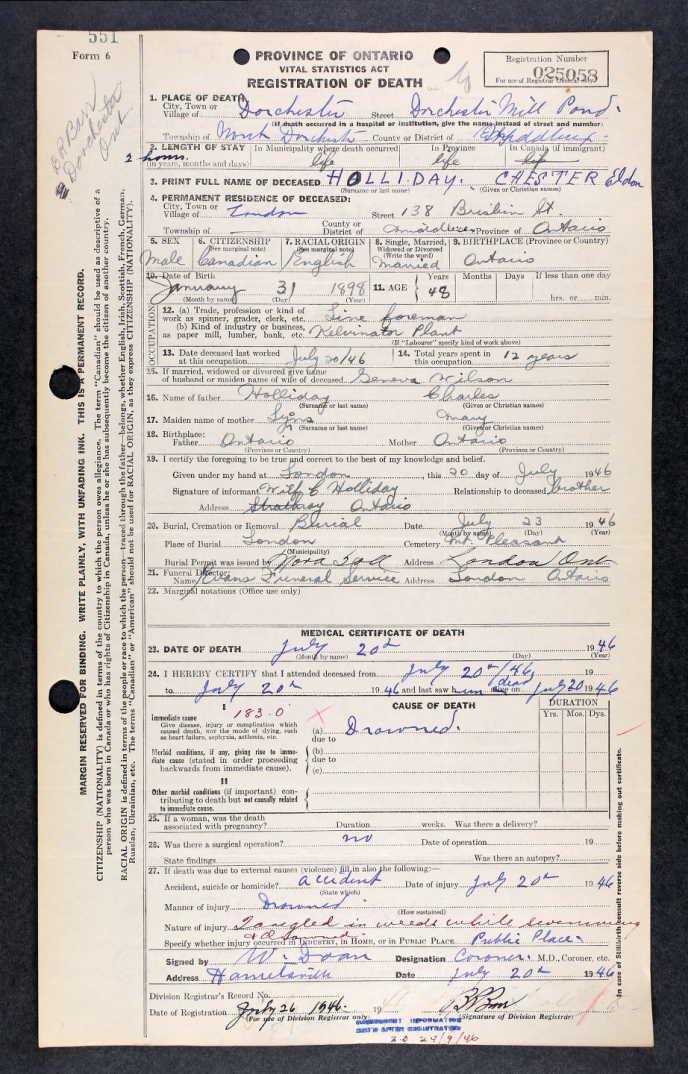 551
Form 6
PROVINCE OF ONTARIO
VITAL STATISTICS ACT
REGISTRATION OF DEATH
Registration Number
025058
For use of Registrar General only
1. PLACE OF DEATH
City, Town or Village of Dorchester Street Dorchester Mill Pond.
(If death occurred in a hospital or institution, give the name instead of street and number)
Township of North Dorchester County or District of
2. LENGTH OF STAY In Municipality where death occurred In Province In Canada (if immigrant)
2 hours
(in years, months and days) life life life
3. PRINT FULL NAME OF DECEASED HOLLIDAY. CHESTER Eldon
(Surname or last name) (Given or Christian names)
4. PERMANENT RESIDENCE OF DECEASED:
City, Town or Village of London Street 138 Briscoe St.
Township of County or District of Middlesex Province of Ontario
5. SEX 6. CITIZENSHIP (See marginal note) 7. RACIAL ORIGIN (See marginal note) 8. Single, Married, Widowed or Divorced (Write the word) 9. BIRTHPLACE (Province or Country)
Male Canadian English Married Ontario
10. Date of Birth 11. AGE Years Months Days If less than one day
January 31 1898 48 hrs. or min.
(Month by name) (Day) (Year)
OCCUPATION
12. (a) Trade, profession or kind of work as spinner, grader, clerk, etc. Line foreman
(b) Kind of industry or business, as paper mill, lumber, bank, etc. Kelvinator Plant
(If "Labourer" specify kind of work above)
13. Date deceased last worked at this occupation July 20/46 14. Total years spent in this occupation 12 years
15. If married, widowed or divorced give name of husband or maiden name of wife of deceased. Geneva Wilson
16. Name of father Holliday Charles
(Surname or last name) (Given or Christian names)
17. Maiden name of mother Mary
(Surname or last name) (Given or Christian names)
18. Birthplace: Father Ontario Mother Ontario
(Province or Country) (Province or Country)
19. I certify the foregoing to be true and correct to the best of my knowledge and belief.
Given under my hand at London, this 20 day of July 1946
Signature of informant Wilf C Holliday Relationship to deceased brother
Address Strathroy Ontario
20. Burial, Cremation or Removal Burial Date July 23 1946
(Month by name) (Day) (Year)
Place of Burial London Cemetery Mt. Pleasant
(Municipality)
Burial Permit was issued by Address London Ont
21. Funeral Director: Name Evans Funeral Service Address London Ontario
22. Marginal notations (Office use only)
MEDICAL CERTIFICATE OF DEATH
23. DATE OF DEATH July 20th 1946
(Month by name) (Day) (Year)
24. I HEREBY CERTIFY that I attended deceased from July 20th/46, 19
to July 20th 1946 and last saw him alive on July 20 1946
dead
I CAUSE OF DEATH DURATION
Yrs. Mos. Dys.
Immediate cause 183-0
Give disease, injury or complication which caused death, not the mode of dying, such as heart failure, asphyxia, asthenia, etc.
(a) Drowned.
due to
Morbid conditions, if any, giving rise to immediate cause (stated in order proceeding backwards from immediate cause).
(b)
due to
(c)
II
Other morbid conditions (if important) contributing to death but not causally related to immediate cause.
25. If a woman, was the death associated with pregnancy? Duration weeks. Was there a delivery?
26. Was there a surgical operation? no Date of operation 19
State findings Was there an autopsy?
27. If death was due to external causes (violence) fill in also the following:—
Accident, suicide or homicide? accident Date of injury July 20th 1946
(State which)
Manner of injury Drowned
(How sustained)
Nature of injury Tangled in weeds while swimming
& drowned
Specify whether injury occurred in INDUSTRY, in HOME, or in PUBLIC PLACE Public Place.
Signed by W. Doan Designation Coroner M.D., Coroner, etc.
Address Harrietsville Date July 20th 1946
Division Registrar's Record No.
Date of Registration July 26 1946. 19
(For use of Division Registrar only) (Signature of Division Registrar)
23/9/46
MARGIN RESERVED FOR BINDING. WRITE PLAINLY, WITH UNFADING INK. THIS IS A PERMANENT RECORD.
CITIZENSHIP (NATIONALITY) is defined in terms of the country to which the person owes allegiance. The term "Canadian" should be used as descriptive of a person who was born in Canada or who has rights of Citizenship in Canada, unless he or she has subsequently become the citizen of another country.
RACIAL ORIGIN is defined in terms of the people or race to which the person—traced through the father—belongs, whether English, Irish, Scottish, French, German, Russian, Ukrainian, etc. The terms "Canadian" or "American" should not be used for RACIAL ORIGIN, as they express CITIZENSHIP (NATIONALITY).
In case of Stillbirth consult reverse side before making out certificate.